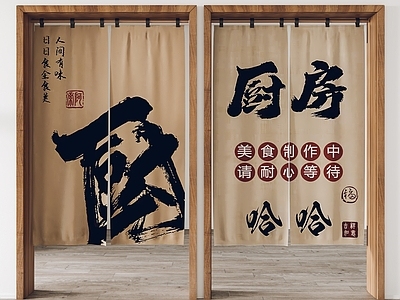 人间有味
日日食全食美
厨
厨房
美食制作中
请耐心等待
哈哈
福